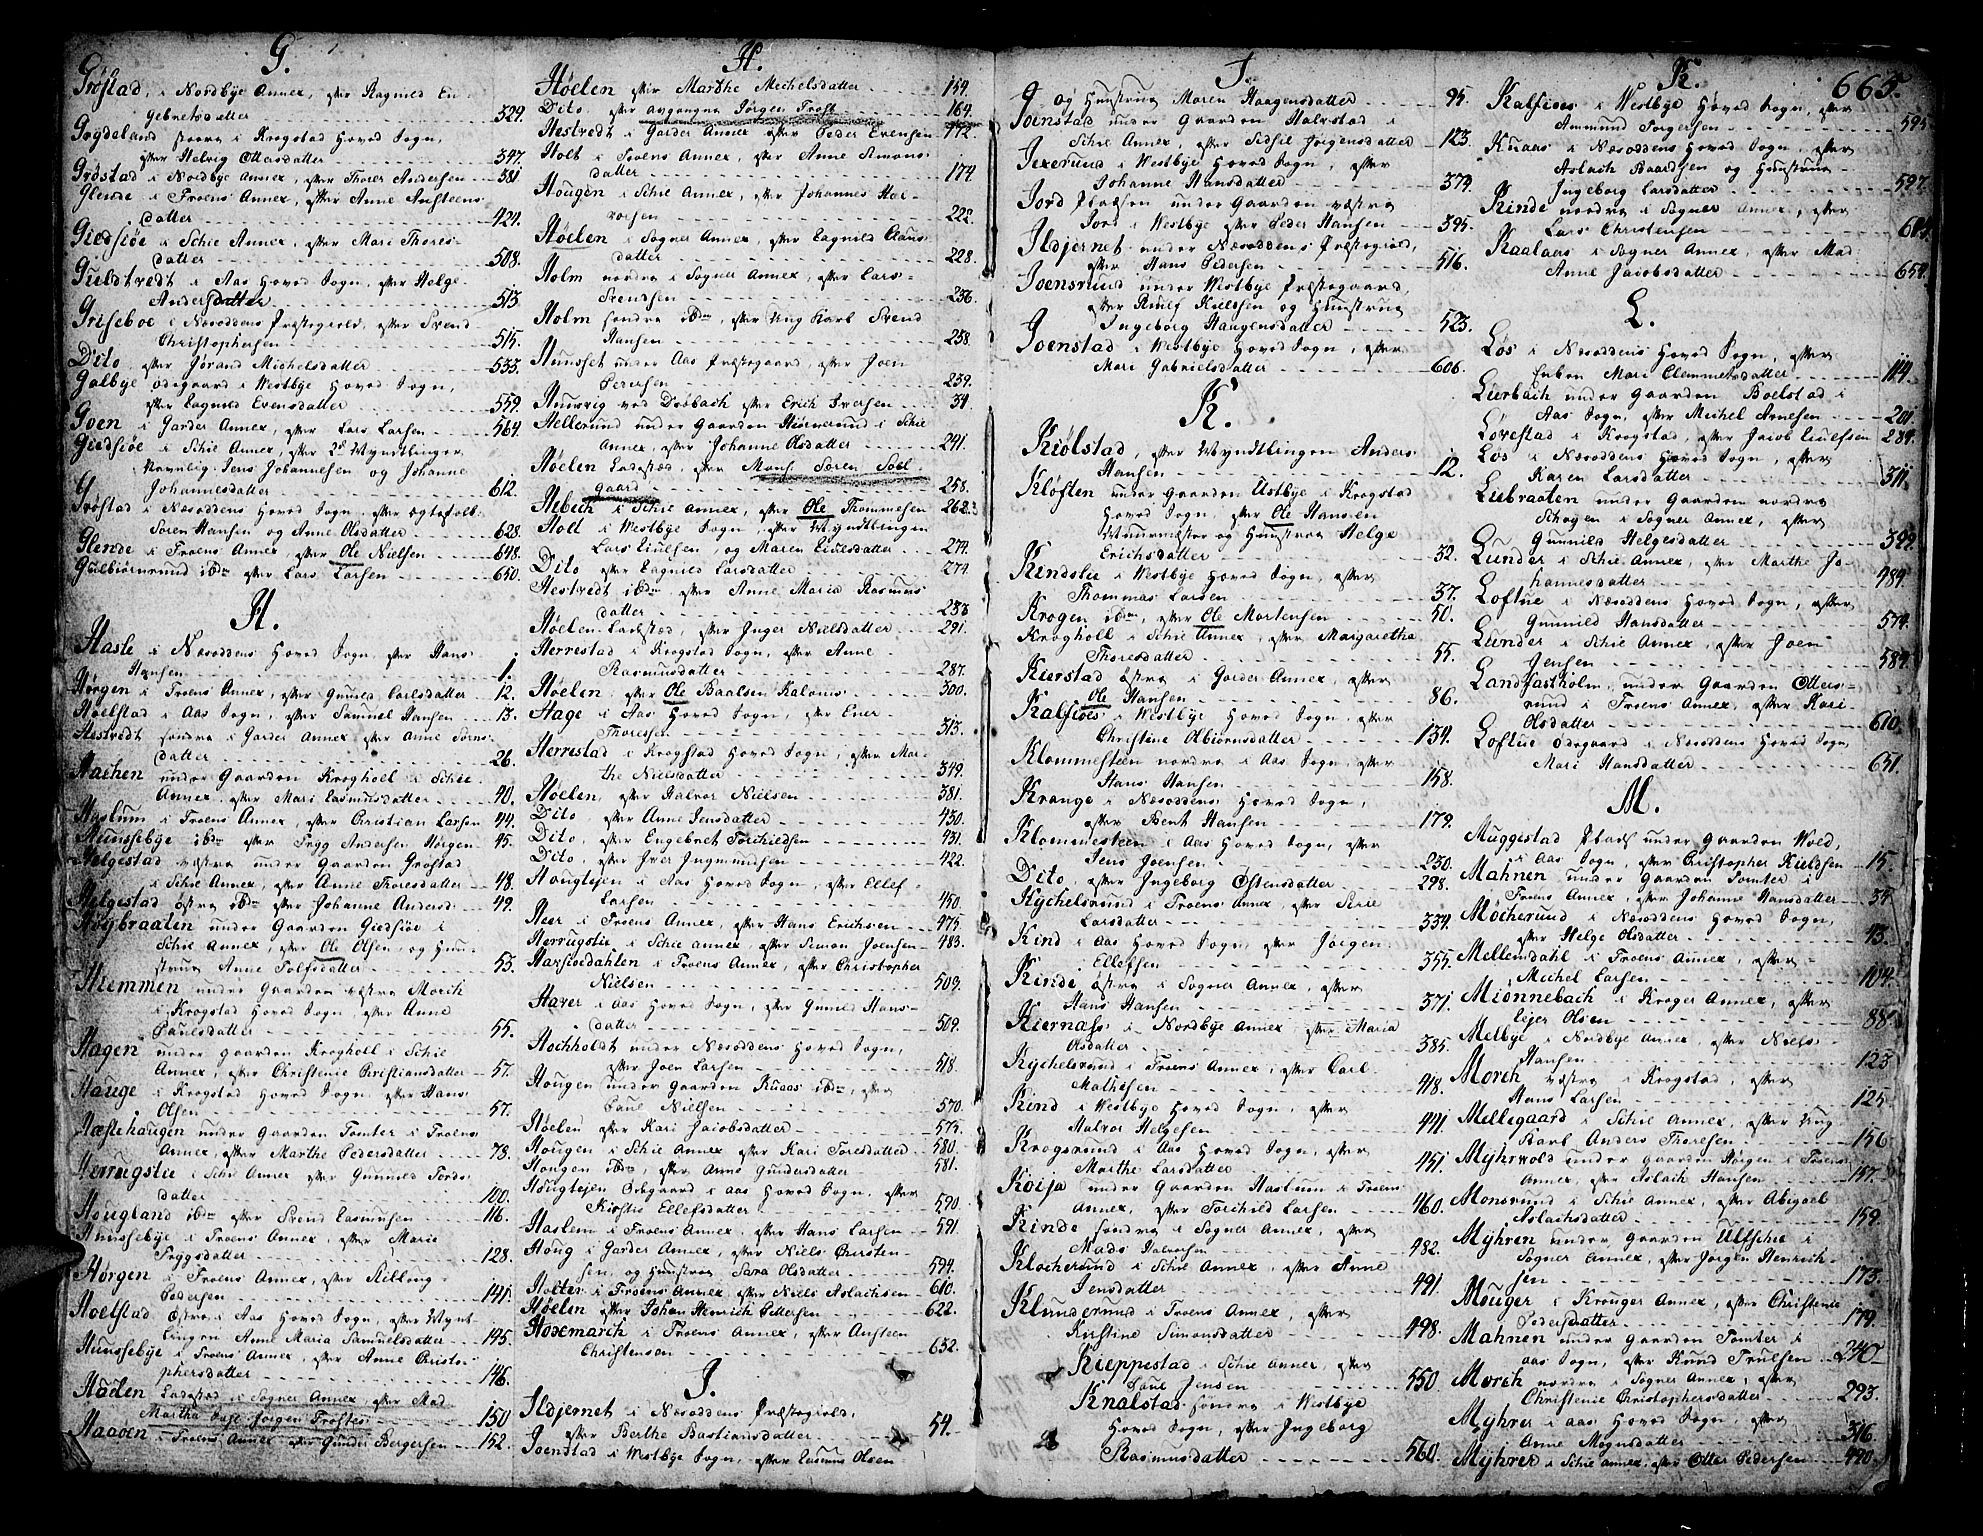 G.
Grøstad, i Nordbye Annex, efter Ragnild En
gebretsdatter 329.
Gogdaland større i Krogstad Hoved Sogn,
efter Helvig Ottersdatter 347.
Grøstad i Nordbye Annex, efter Thorer Andersen 381
Glende i Froens Annex, efter Anne Ansteens
datter 424.
Giedsiøe i Schie Annex, efter Mari Thores
datter 508.
Guldtvedt i Aas Hoved Sogn, efter Helge
Andersdatter 513.
Griseboe i Næsoddens Præstegield, efter Svend
Christophersen 515.
Dito, efter Jørand Michelsdatter 533.
Galbye ødegaard i Westbye Hoved Sogn,
efter Ragnild Evensdatter 559.
Goen i Garder Annex, efter Lars Larsen 564.
Giedsiøe i Schie Annex, efter 2de Myndtlinger
Navnlig Jens Johannesen og Johanne
Johannesdatter 612.
Grøstad i Næsoddens Hoved Sogn, efter ægtefolk
Søren Hansen og Anne Olsdatter 628.
Glende i Froens Annex, efter Ole Nielsen 648.
Gulbiørnsrud ibdm efter Lars Larsen 650.
H.
Hasle i Næsoddens Hoved Sogn, efter Hans
Hansen 1.
Hørgen i Froens Annex, efter Gunild Carlsdatter 12.
Hoelstad i Aas Sogn, efter Samuel Hansen 13.
Hestvedt søndre i Garder Annex efter Anne Søns
datter 26.
Hachen under Gaarden Kroghoel i Schie
Annex, efter Mari Rasmusdatter 40.
Haslum i Froens Annex, efter Christian Larsen 44.
Hunssebye ibdm efter Trygg Andersen Hørgen 45.
Helgestad vestre under Gaarden Grøstad
i Schie Annex, efter Anne Thoresdatter 48.
Helgestad østre ibdm efter Johanne Andersd. 49.
Høybraaten under Gaarden Giedsiøe i
Schie Annex, efter Ole Olsen, og Huu
strue Anne Tolfsdatter 53.
Hiemmen under Gaarden vestre Morch
i Krogstad Hoved Sogn, efter Anne
Paulsdatter 55.
Hagen under Gaarden Krogholl i Schie
Annex, efter Christenie Christiansdatter 57.
Hauge i Krogstad Hoved Sogn, efter Hans
Olsen 57.
Hæstehaugen under Gaarden Tomter i Froens
Annex, efter Marthe Pedersdatter 78.
Herrugstie i Schie Annex efter Gunnild Tords
datter 100.
Hougland ibdm efter Svend Rasmusen 116.
Hunssebye i Froens Annex, efter Marie
Tryggsdatter 128.
Hørgen i Froens Annex, efter Killeng
Pedersen 141.
Hoelstad østre i Aas Hoved Sogn, efter Mynt
lingen Anne Maria Samuelsdatter 145.
Hunssebye i Froens Annex, efter Anne Christo
phersdatter 146.
Hølen Ladested i Sogner Annex efter Mad
Martha Sal. Jørgen Trostes 150
Haaøen i Froens Annex efter Gunder Bergersen 152.
H.
Høelen efter Marthe Mechelsdatter 159.
Dito, efter avgangne Jørgen Trost 164.
Hestvedt i Garder Annex, efter Peder Evensen 172.
Holt i Froens Annex, efter Anne Simons
datter 174.
Hougen i Schie Annex, efter Johannes Hal
vorsen 222.
Høelen i Sogner Annex, efter Ragnild Claus
datter 228.
Holm nordre i Sogner Annex, efter Lars
Svendsen 236.
Holm søndre ibdm, efter Ung Karl Svend
Hansen 238.
Huusset under Aas Præstegaard, efter Joen
Persen 239.
Huusvig ved Drøbach efter Erich Iversen 31.
Hellerund under Gaarden Hiørnerud i Schie
Annex, efter Johanne Olsdatter 241.
Høelen Ladested, efter Mons. Søren Søel
gaard 258.
Hebech i Schie Annex, efter Ole Thommesen 262.
Holt i Westbye Sogn, efter Myndtlingen
Lars Siulsen, og Maren Siulsdatter 274.
Dito efter Ragnild Larsdatter 274
Hestvedt ibdm efter Anne Maria Rasmus
datter 283
Høelen Ladested, efter Inger Nielsdatter 291.
Herrestad i Krogstad Sogn, efter Anne
Rasmusdatter 287.
Høelen, efter Ole Paalsen Kalows 300.
Hage i Aas Hoved Sogn, efter Ener
Thoresen 313.
Herrestad i Krogstad Hoved Sogn, efter Mar
the Nielsdatter 349.
Høelen, efter Halvor Nielsen 381.
Dito, efter Anne Jensdatter 430.
Dito, efter Engebret Torchildsen 431.
Dito, efter Iver Ingmundsen 422.
Hougtejen i Aas Hoved Sogn, efter Ellef
Larsen 450.
Heer i Froens Annex, efter Hans Erichsen 475.
Herrugstie i Schie Annex, efter Simon Joensen 483.
Havsiødahlen i Froens Annex, efter Christopher
Nielsen 509.
Haver i Aas Hoved Sogn, efter Gunild Hans
datter 509.
Hochholdt under Næsoddens Hoved Sogn,
efter Joen Larsen 518.
Hougen under Gaarden Kuaas ibdm, efter
Paul Nielsen 570.
Høelen efter Kari Jacobsdatter 573.
Hougen i Schie Annex efter Kari Toresdatter 580.
Hougen ibdm, efter Anne Gundersdatter 581.
Hougtejen Ødegaard i Aas Hoved Sogn, efter
Kirstie Ellefsdatter 590.
Haslem i Froens Annex, efter Hans Larsen 591.
Houg i Garder Annex, efter Niels Christen
sen, og Huustrue Sara Olsdatter 594.
Holter i Froens Annex, efter Niels Aslachsen 610.
Høelen efter Johan Henrich Pettersen 622.
Hosemarch i Froens Annex, efter Ansteen
Christensen 632.
I.
Ildjernet i Næsoddens Præstegield,
efter Berthe Bastiansdatter 54.
Joenstad i Westbye Sogn, efter Rasmus Olsen
I.
og Huustrue Maren Haagensdatter 95.
Joenstad under Gaarden Halvstad i
Schie Annex, efter Sidsel Jørgensdatter 123.
Jexerund i Westbye Hoved Sogn, efter
Johanne Hansdatter 379.
Jord Pladsen under Gaarden vestre
Jord i Westbye efter Peder Hansen 395.
Ildjernet under Næsoddens Præstegield,
efter Hans Pedersen 516.
Joensrund under Westbye Præstegaard,
efter Rolf Nielssen og Huustrue
Ingeborg Haagensdatter 523.
Joenstad i Westbye Hoved Sogn, efter
Mari Gabrielsdatter 606.
K.
Kiølstad, efter Myndtlingen Anders
Hansen 12.
Kløften under Gaarden Ustbye i Krogstad
Hoved Sogn, efter Ole Hansen
Muurmester og Huustrue Helge
Erichsdatter 32.
Kindslie i Westbye Hoved Sogn, efter
Thommas Larsen 37.
Krogen ibdm, efter Ole Mortensen 50.
Krogholl i Schie Annex, efter Margaretha
Thoresdatter 55.
Kierstad østre i Garder Annex, efter
Ole Hansen 86.
Kalsioes i Westbye Hoved Sogn, efter
Christine Olbiørnsdatter 134.
Klommesteen nordre i Aas Sogn, efter
Hans Hansen 158.
Krange i Næsoddens Hoved Sogn,
efter Bent Hansen 179.
Klommesteen i Aas Hoved Sogn, efter
Jens Joensen 230.
Dito, efter Ingeborg Ostensdatter 298.
Kychelsrund i Froens Annex, efter Sirie
Larsdatter 334.
Kind i Aas Hoved Sogn, efter Jørgen
Ellefsen 355.
Kinde østre i Sogner Annex, efter
Hans Hansen 371.
Kiernæss i Nordbye Annex efter Maria
Olsdatter 385.
Kychelsrund i Froens Annex, efter Carl
Mathesen 418.
Kind i Westbye Hoved Sogn, efter
Halvor Helgesen 441.
Krogsrund i Aas Hoved Sogn, efter
Marthe Larsdatter 451.
Koija under Gaarden Haslum i Froens
Annex, efter Torchild Larsen 460.
Kinde søndre i Sogner Annex, efter
Mads Halvorsen 482.
Klocherund i Schie Annex, efter Anne
Jensdatter 491.
Klunderund i Froens Annex, efter
Kirstine Simonsdatter 498.
Kieppestad i Schie Annex, efter
Poul Jensen 550
Knalstad søndre i Westbye
Hoved Sogn, efter Ingeborg
Rasmusdatter 560.
K. 665.
Kalsioes i Westbye Hoved Sogn, efter
Ammund Torgersen 595.
Kuaas i Næsoddens Hoved Sogn, efter
Aslach Baardsen og Huustrue
Ingeborg Larsdatter 597.
Kinde nordre i Sogner Annex, efter
Lars Christensen 604.
Kaalaas i Sogner Annex, efter Mad
Anne Jacobsdatter 654.
L.
Løs i Næsoddens Hoved Sogn, efter
Enken Mari Clemmetsdatter 114.
Lierbach under Gaarden Boelstad i
Aas Sogn, efter Michel Arnesen 201
Løvestad i Krogstad, efter Jacob Siulsen 284.
Løs i Næsoddens Hoved Sogn, efter
Karen Larsdatter 311.
Liebraaten under Gaarden nordre
Schoyen i Sogner Annex, efter
Gunnild Helgesdatter 399.
Lunder i Schie Annex, efter Marthe Jo
hannesdatter 489.
Loftue i Næsoddens Hoved Sogn, efter
Gunnild Hansdatter 574.
Lunder i Schie Annex, efter Joen
Jensen 589.
Landfastholm, under Gaarden Otters
rund i Froens Annex, efter Kari
Olsdatter 610.
Loftue ødegaard i Næsoddens Hoved Sogn,
Mari Hansdatter 651.
M.
Muggestad Plads under Gaarden Wold,
i Aas Sogn, efter Christopher Kieldsen 15.
Mahnen under Gaarden Tomter i
Froens Annex, efter Johanne Hansdatter 35
Mocherund i Næsoddens Hoved Sogn,
efter Helge Olsdatter 43.
Mellemdahl i Froens Annex, efter
Michel Larsen 104.
Miønnebach i Kroger Annex, efter
Ejer Olsen 88
Melbye i Nordbye Annex, efter Niels
Hansen 123
Morch vestre i Krogstad, efter
Hans Larsen 125
Mellegaard i Schie Annex, efter Ung
Karl Anders Thoresen 156
Myhrvold under Gaarden Hørgen i Froens
Annex, efter Aslach Hansen 157.
Monsrund i Schie Annex, efter Abigael
Aslachsdatter 159.
Myhren under Gaarden Ulfschie i
Sogner Annex, efter Jørgen Henrich
sen 173.
Mouger i Krouger Annex, efter Christenie
Pedersdatter 179.
Mahnen under Gaarden Tomter i
Aas Sogn, efter Knud Truelsen 240
Morch nordre i Sogner Annex, efter
Christenie Christophersdatter 293.
Myhrer i Aas Hoved Sogn, efter
Anne Mognsdatter 316.
Myhrer i Schie Annex, efter Otter Pedersen 490.